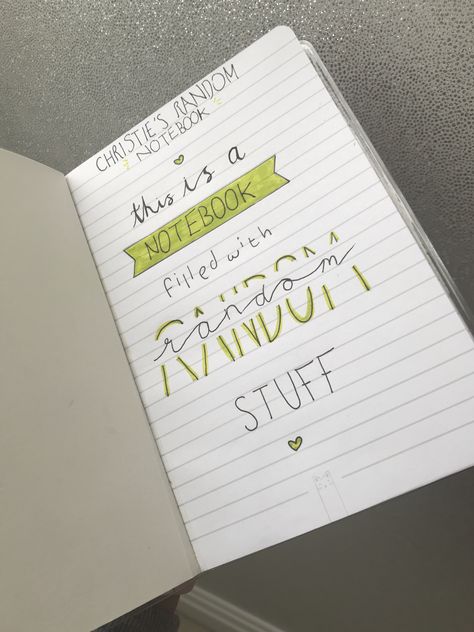 CHRISTIE'S RANDOM
NOTEBOOK
this is a
NOTEBOOK
filled with
RANDOM
random
STUFF